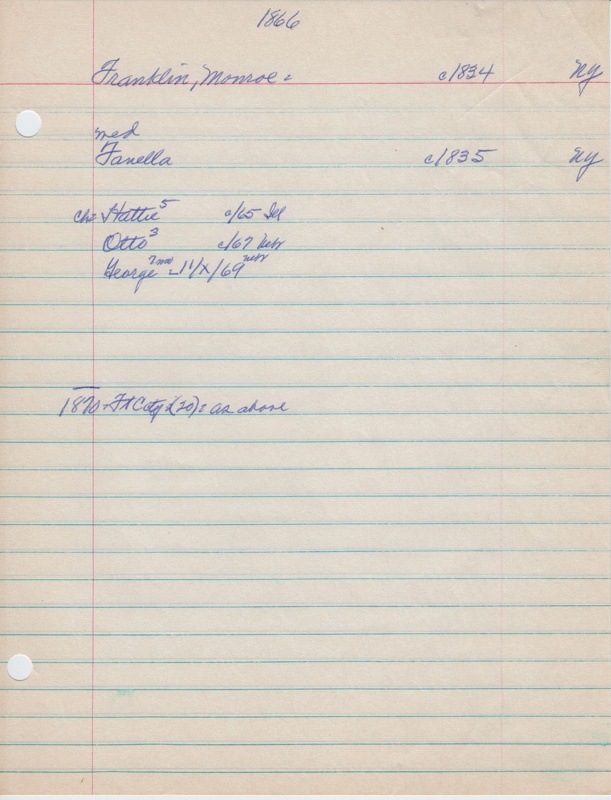 1866
Franklin, Monroe = c/834 NY
med
Fanella c/835 NY
chs Hattie 5 c/65 Ill
Otto 3 c/67 Nebr
George 7mo - 11/X/69 nebr
1870 - Ft City (20): as above